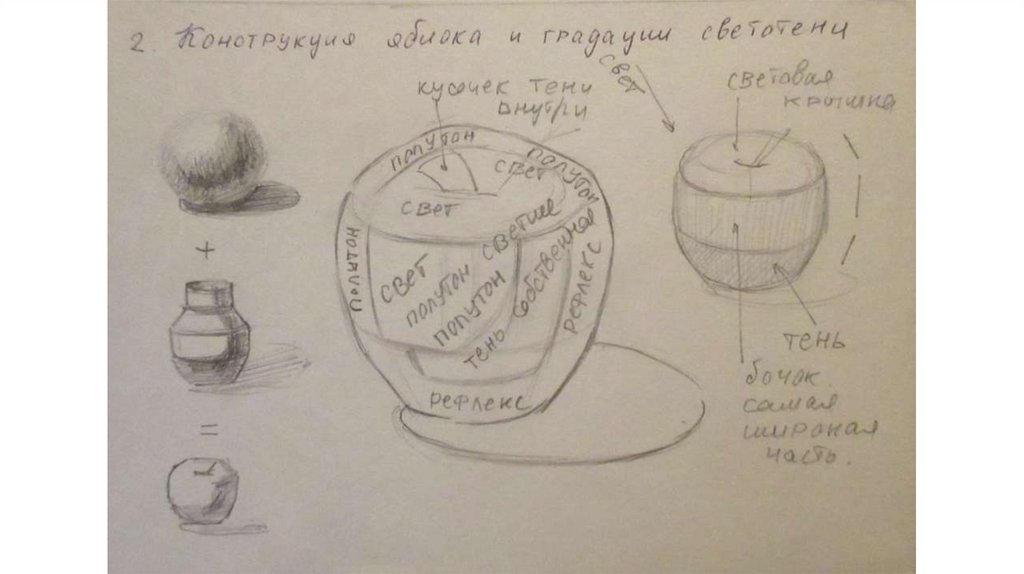 2. Конструкция яблока и градации светотени
свет
кусочек тени
внутри
световая
крышка
полутон
полутон
свет
свет
полутон
свет
полутон
полутон
светлее
тень собственная
рефлекс
рефлекс
+
=
тень
бочок.
самая
широкая
часть.